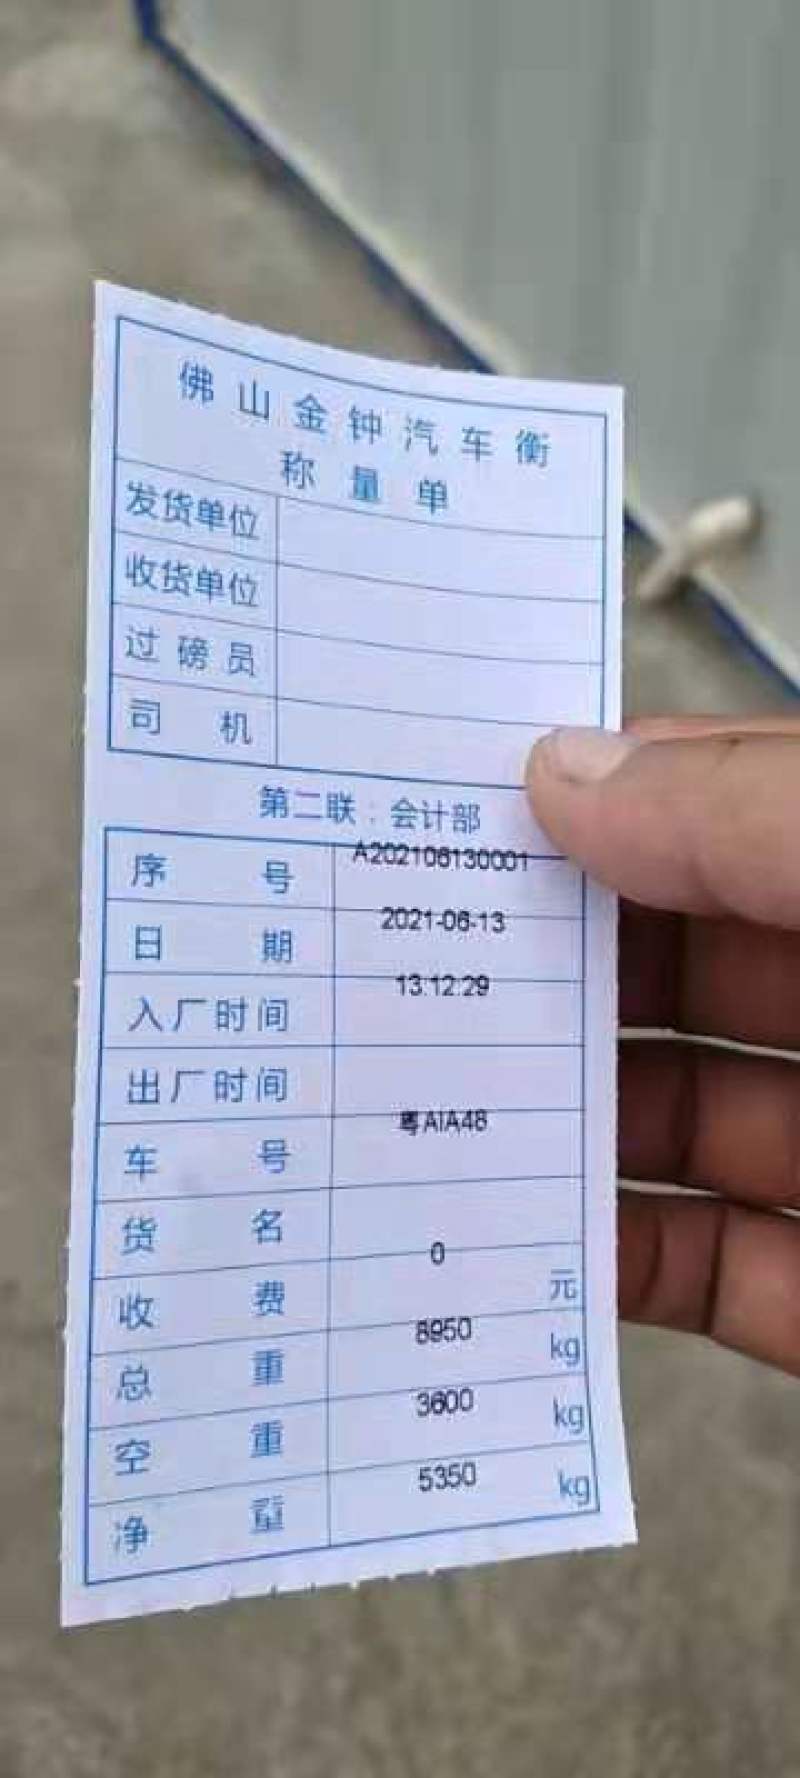 佛山金钟汽车衡
称量单
发货单位
收货单位
过磅员
司机
第二联：会计部
序号 A202106130001
日期 2021-06-13
入厂时间 13:12:29
出厂时间
车号 粤AIA48
货名
收费 0 元
总重 8950 kg
空重 3600 kg
净重 5350 kg